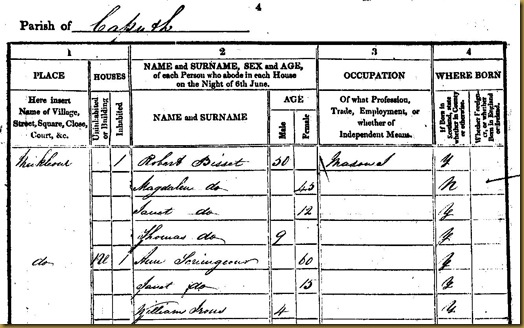 4
Parish of Caputh
1 2 3 4
PLACE HOUSES NAME and SURNAME, SEX and AGE, of each Person who abode in each House on the Night of 6th June. OCCUPATION WHERE BORN
Here insert Name of Village, Street, Square, Close, Court, &c. Uninhabited or Building Inhabited NAME and SURNAME AGE Male Female Of what Profession, Trade, Employment, or whether of Independent Means. If Born in Scotland, state whether in County or otherwise. Whether Foreigner, or whether Born in England or Ireland.
Meikleour 1 Robert Bisset 50 Mason J Y
Magdalen do 45 N
Janet do 12 Y
Thomas do 9 Y
do 1 Ann Scrimgeour 60 Y
Janet do 15 Y
William Irons 4 Y